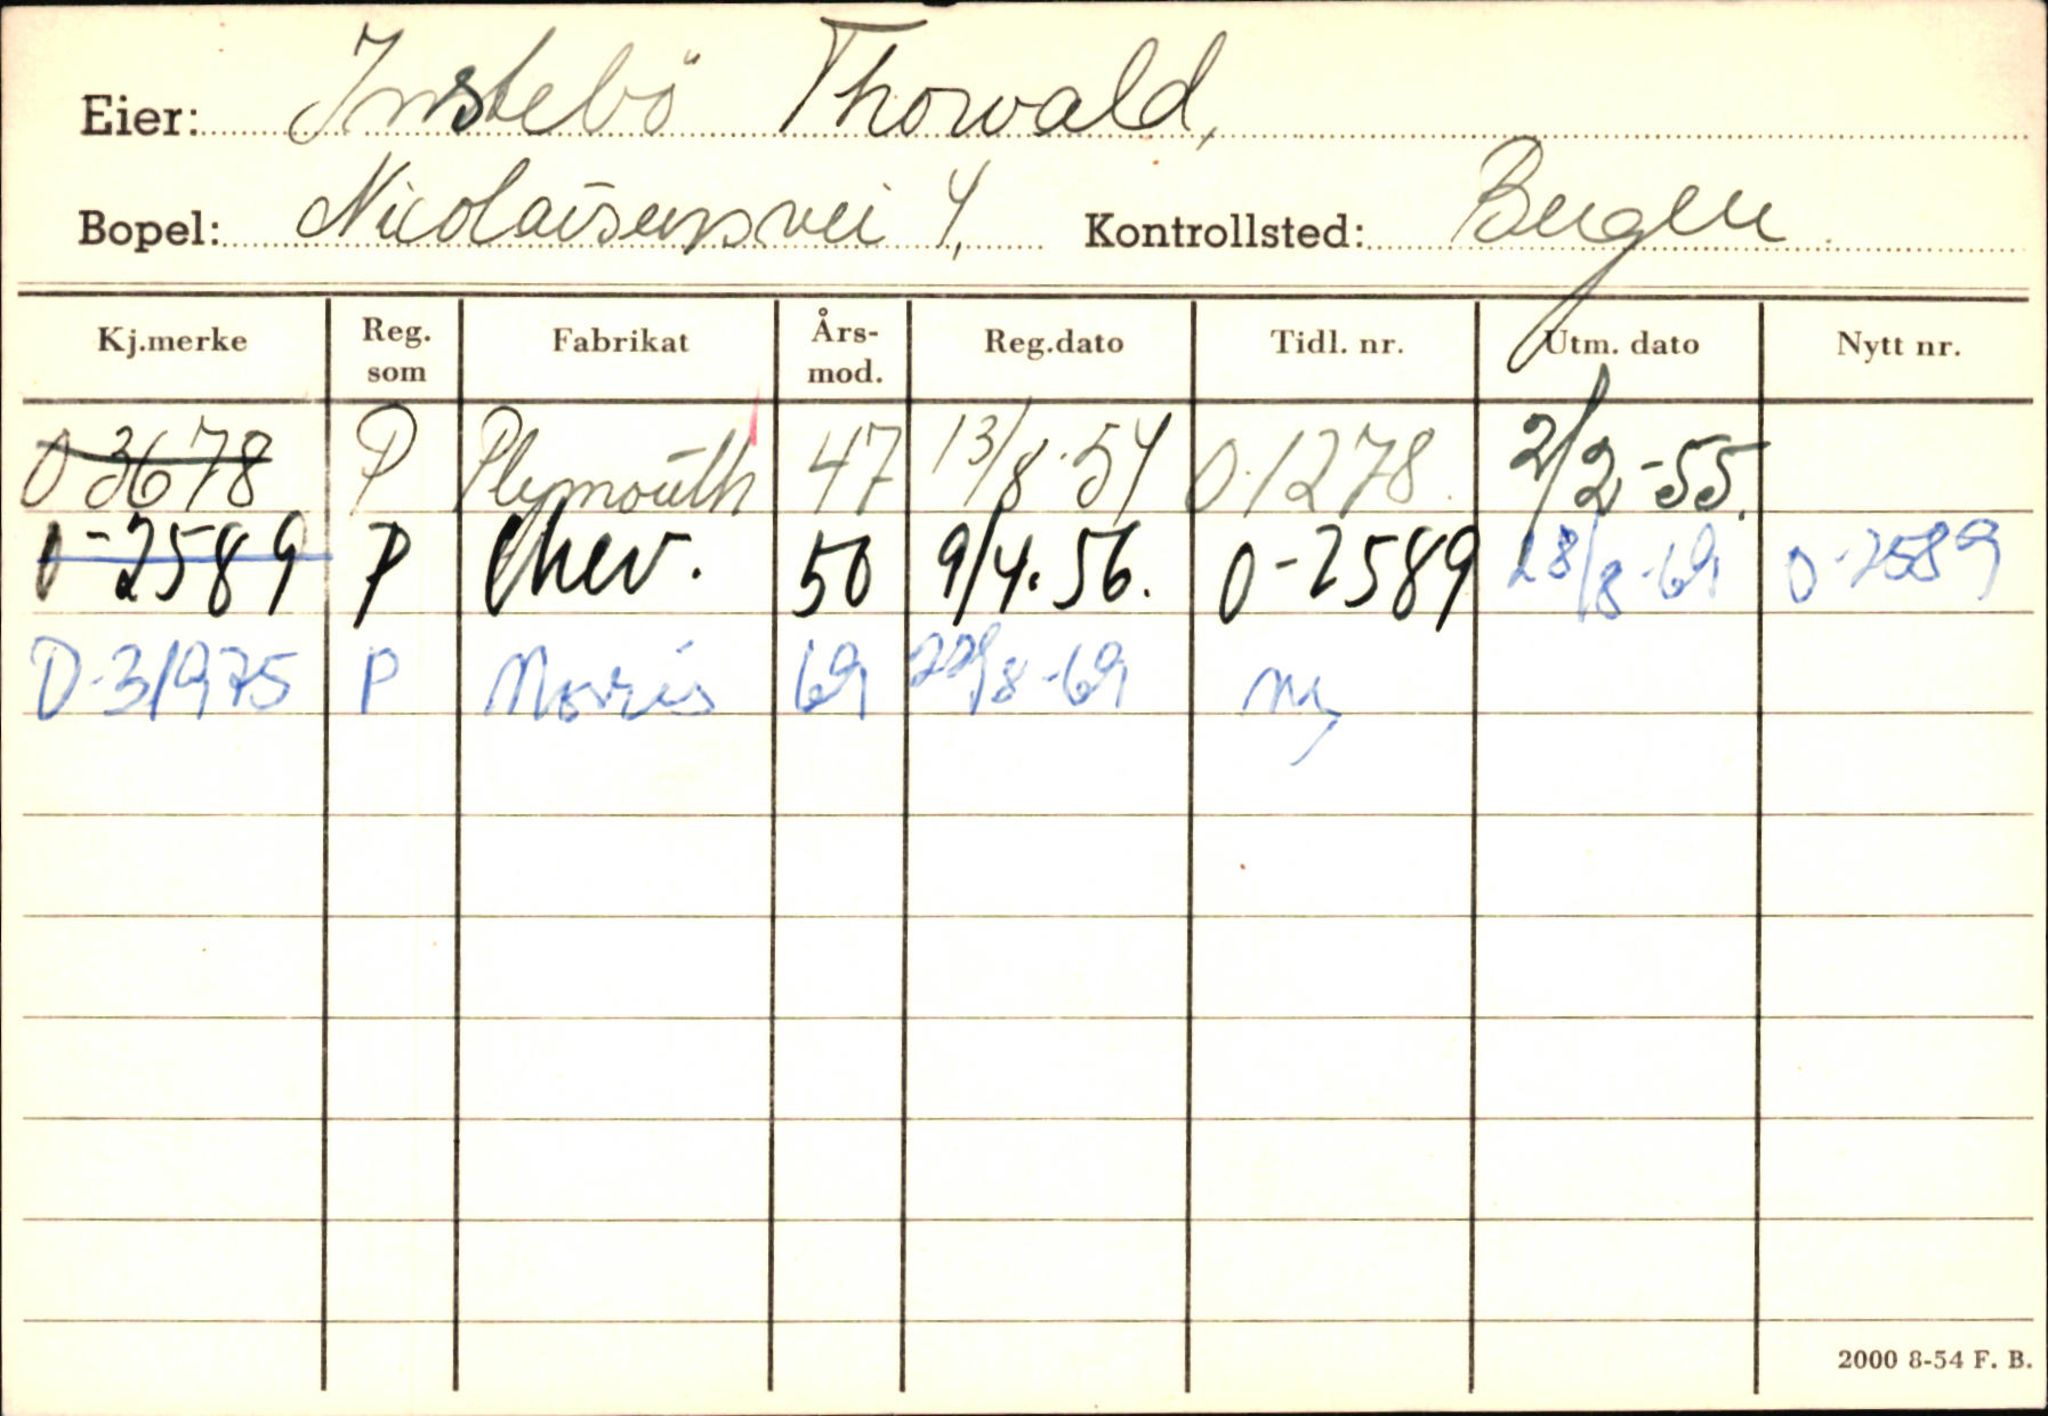 Eier: Instebö Thorvald,
Bopel: Nicolaisensvei 4. Kontrollsted: Bergen
Kj.merke Reg. som Fabrikat Års-mod. Reg.dato Tidl. nr. Utm. dato Nytt nr.
O-3678 P Plymouth 47 13/8-54 O-1278 2/2-55.
O-2589 P Chev. 50 9/4-56. O-2589 28/8-69 O-2589
O-31975 P Morris 69 29/8-69 ny
2000 8-54 F. B.